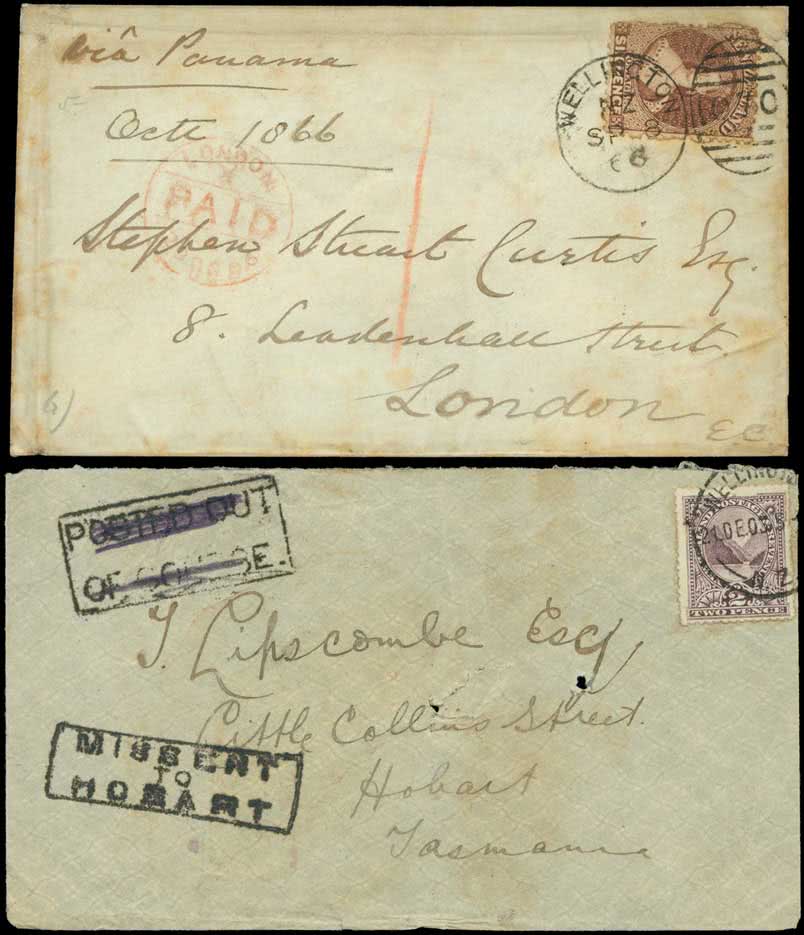 viâ Panama
Octr 1866
WELLINGTON
NZ
SP 8
66
SIXPENCE
LONDON
PAID
Stephen Stuart Curtis Esq.
8. Leadenhall Street.
London
E.C.
POSTED OUT
OF COURSE.
WELLINGTON
21 DE 03
N Z
POSTAGE & REVENUE
TWO PENCE
T. Lipscombe Esq
Little Collins Street.
Hobart
Tasmania
MISSENT
TO
HOBART